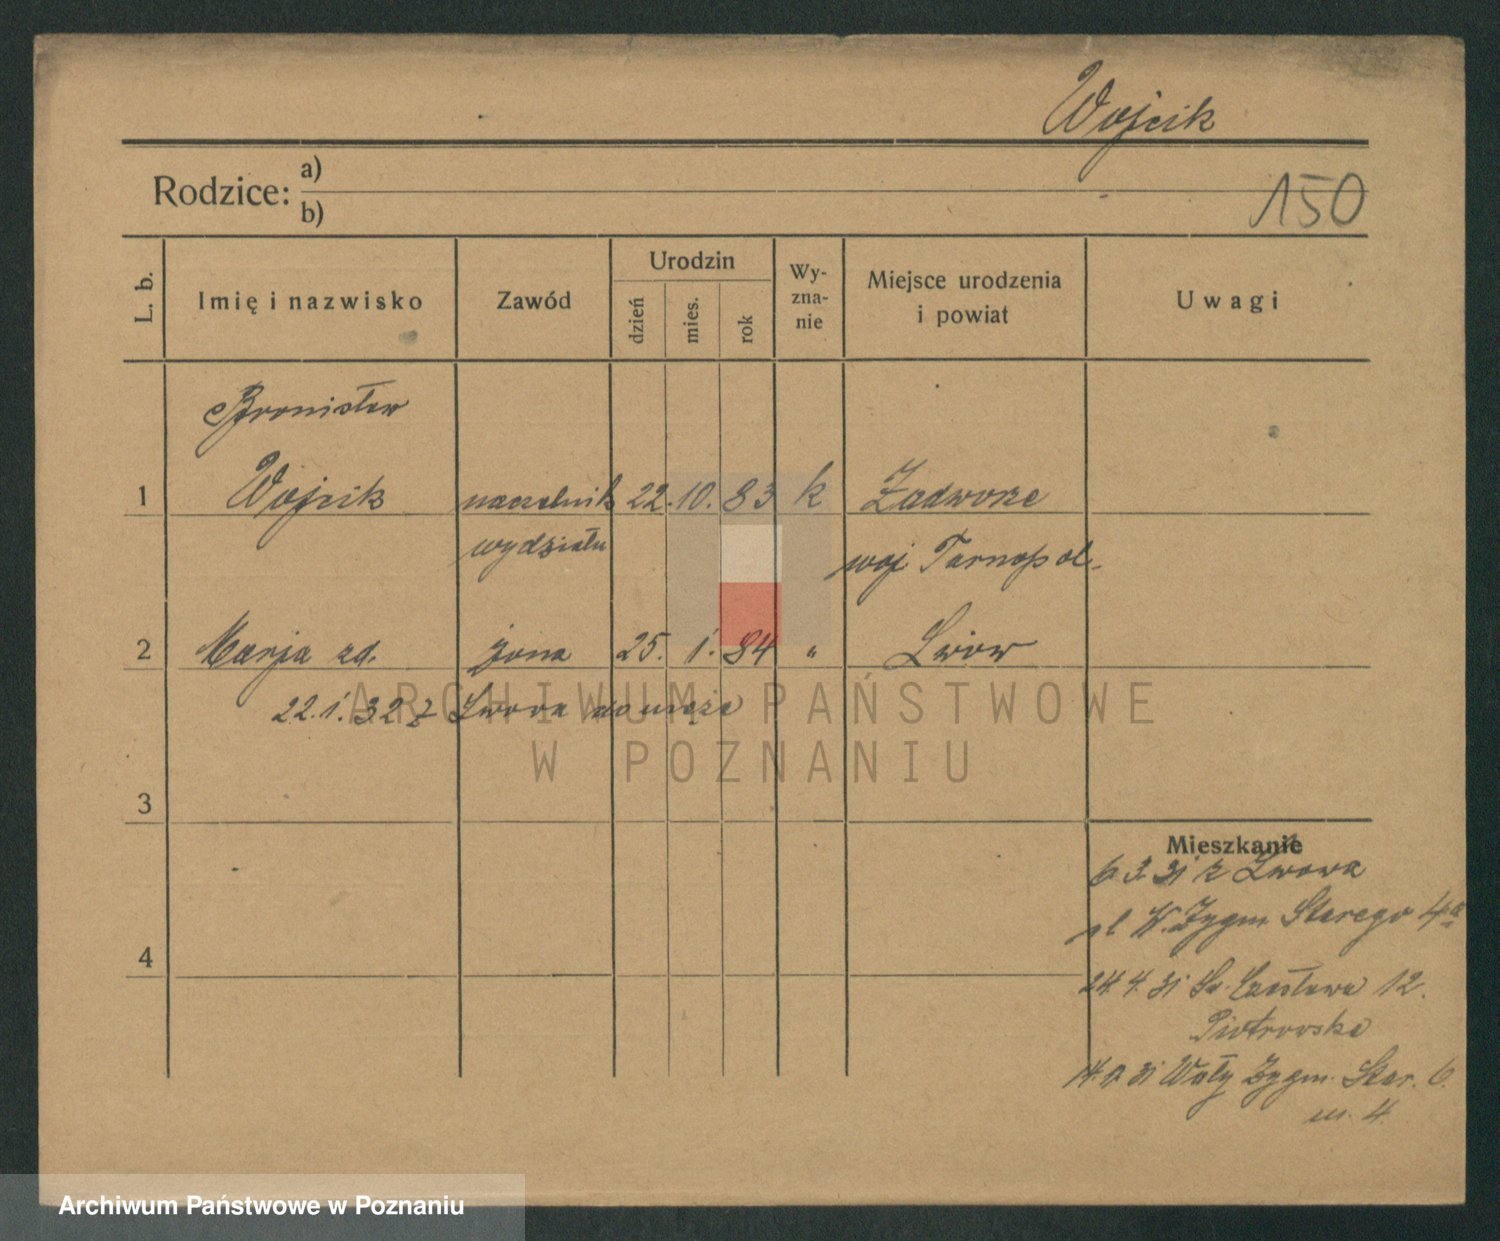 Wojcik
Rodzice: a)
b)
150
L. b.
Imię i nazwisko
Zawód
Urodzin
dzień
mies.
rok
Wy-
zna-
nie
Miejsce urodzenia
i powiat
Uwagi
Bronisław
1 Wojcik naczelnik 22. 10. 83 k Zadworze
wydziału woj Tarnopol.
2 Marja zd. żona 25. 1. 84 " Lwow
22.1.32 z Lwowa do męża
ARCHIWUM PAŃSTWOWE
W POZNANIU
3
Mieszkanie
6.3.31 z Lwowa
W. Zygm. Starego 4a
4
24.4.31 Czesława 12.
Piotrowska
31 Wały Zygm. Star. 6.
m. 4
Archiwum Państwowe w Poznaniu